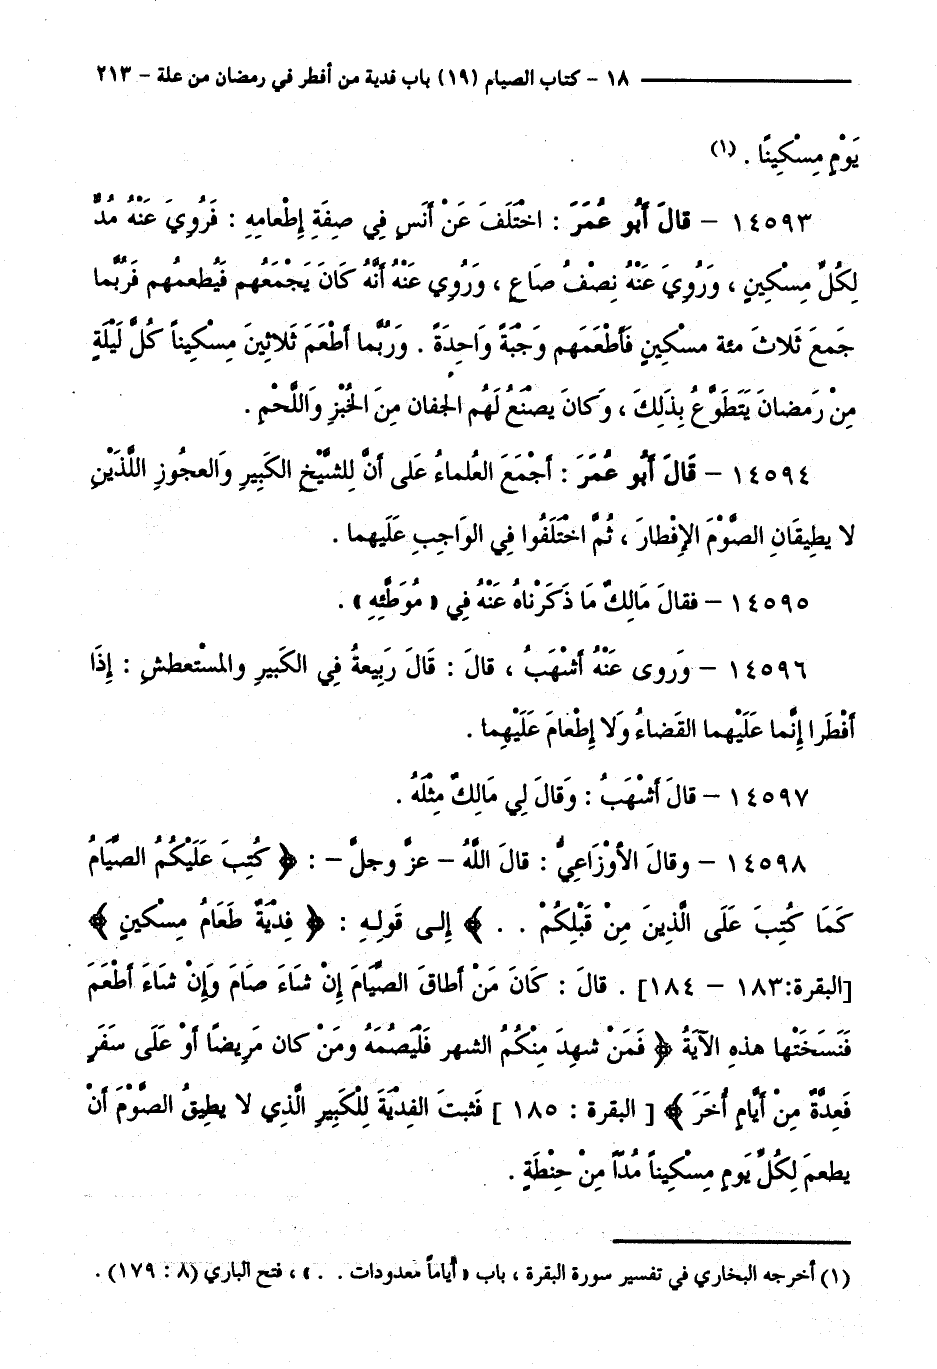 ١٨ - كتاب الصيام (١٩) باب فدية من أفطر في رمضان من علة - ٢١٣
يَوْمٍ مِسْكِينًا . (١)
١٤٥٩٣ - قالَ أَبُو عُمَرَ : اخْتَلَفَ عَنْ أَنَسٍ فِي صِفَةِ إِطْعامِهِ : فَرُوِيَ عَنْهُ مُدٌّ
لِكُلِّ مِسْكِينٍ ، وَرُوِيَ عَنْهُ نِصْفُ صَاعٍ ، وَرُوِي عَنْهُ أَنَّهُ كَانَ يَجْمَعُهم فَيُطعمُهم فَرُبَّما
جَمعَ ثَلاثَ مئة مسكينٍ فَأَطْعَمَهم وَجْبَةً وَاحِدَةً . وَرُبَّما أَطْعَمَ ثَلاثِينَ مِسْكِيناً كُلَّ لَيْلَةٍ
مِنْ رَمضانَ يَتَطَوَّعُ بِذَلِكَ ، وَكانَ يصْنَعُ لَهُم الجفان مِنَ الخُبْزِ وَاللَّحْمِ .
١٤٥٩٤ - قَالَ أَبُو عُمَرَ : أَجْمَعَ العُلماءُ عَلى أَنَّ لِلشَّيْخِ الكَبِيرِ وَالعجُوزِ اللَّذَيْنِ
لا يطِيقَانِ الصَّوْمَ الإِفْطارَ ، ثُمَّ اخْتَلَفُوا فِي الوَاجِبِ عَلَيهما .
١٤٥٩٥ - فقالَ مَالِكٌ مَا ذَكَرْناهُ عَنْهُ فِي « مُوَطَّئِهِ » .
١٤٥٩٦ - وَروى عَنْهُ أَشْهَبُ ، قالَ : قَالَ رَبِيعةُ فِي الكَبيرِ والمسْتعطشِ : إِذَا
أَفْطَرا إِنَّما عَلَيْهما القَضاءُ وَلا إِطْعامَ عَلَيْهِما .
١٤٥٩٧ - قالَ أَشْهَبُ : وَقالَ لِي مَالِكٌ مِثْلَهُ .
١٤٥٩٨ - وقالَ الأَوْزَاعِيُّ : قالَ اللَّهُ - عزَّ وجلَّ - : ﴿ كُتِبَ عَلَيْكُمُ الصِّيَامُ
كَمَا كُتِبَ عَلَى الَّذِينَ مِنْ قَبْلِكُمْ . . ﴾ إِلى قَولِهِ : ﴿ فِدْيَةٌ طَعَامُ مِسْكينٍ ﴾
[البقرة: ١٨٣ - ١٨٤] . قالَ : كَانَ مَنْ أطاقَ الصِّيَامَ إِنْ شَاءَ صَامَ وَإِنْ شَاءَ أَطْعَمَ
فَنَسَخَتْها هذهِ الآيَةُ ﴿ فَمَنْ شهِدَ مِنْكُمُ الشهر فَلْيَصُمْهُ ومَنْ كان مَرِيضًا أَوْ عَلَى سفَرٍ
فَعِدَّةٌ مِنْ أَيَّامٍ أُخَرَ ﴾ [ البقرة : ١٨٥ ] فَثبتَ الفِدْيَةَ لِلْكَبِيرِ الَّذِي لا يطِيقُ الصَّوْمَ أَنْ
يطعمَ لِكُلِّ يَومٍ مِسْكِيناً مُدّاً مِنْ حِنْطَةٍ .
(١) أخرجه البخاري في تفسير سورة البقرة ، باب « أياماً معدودات . . » ، فتح الباري (٨ : ١٧٩) .